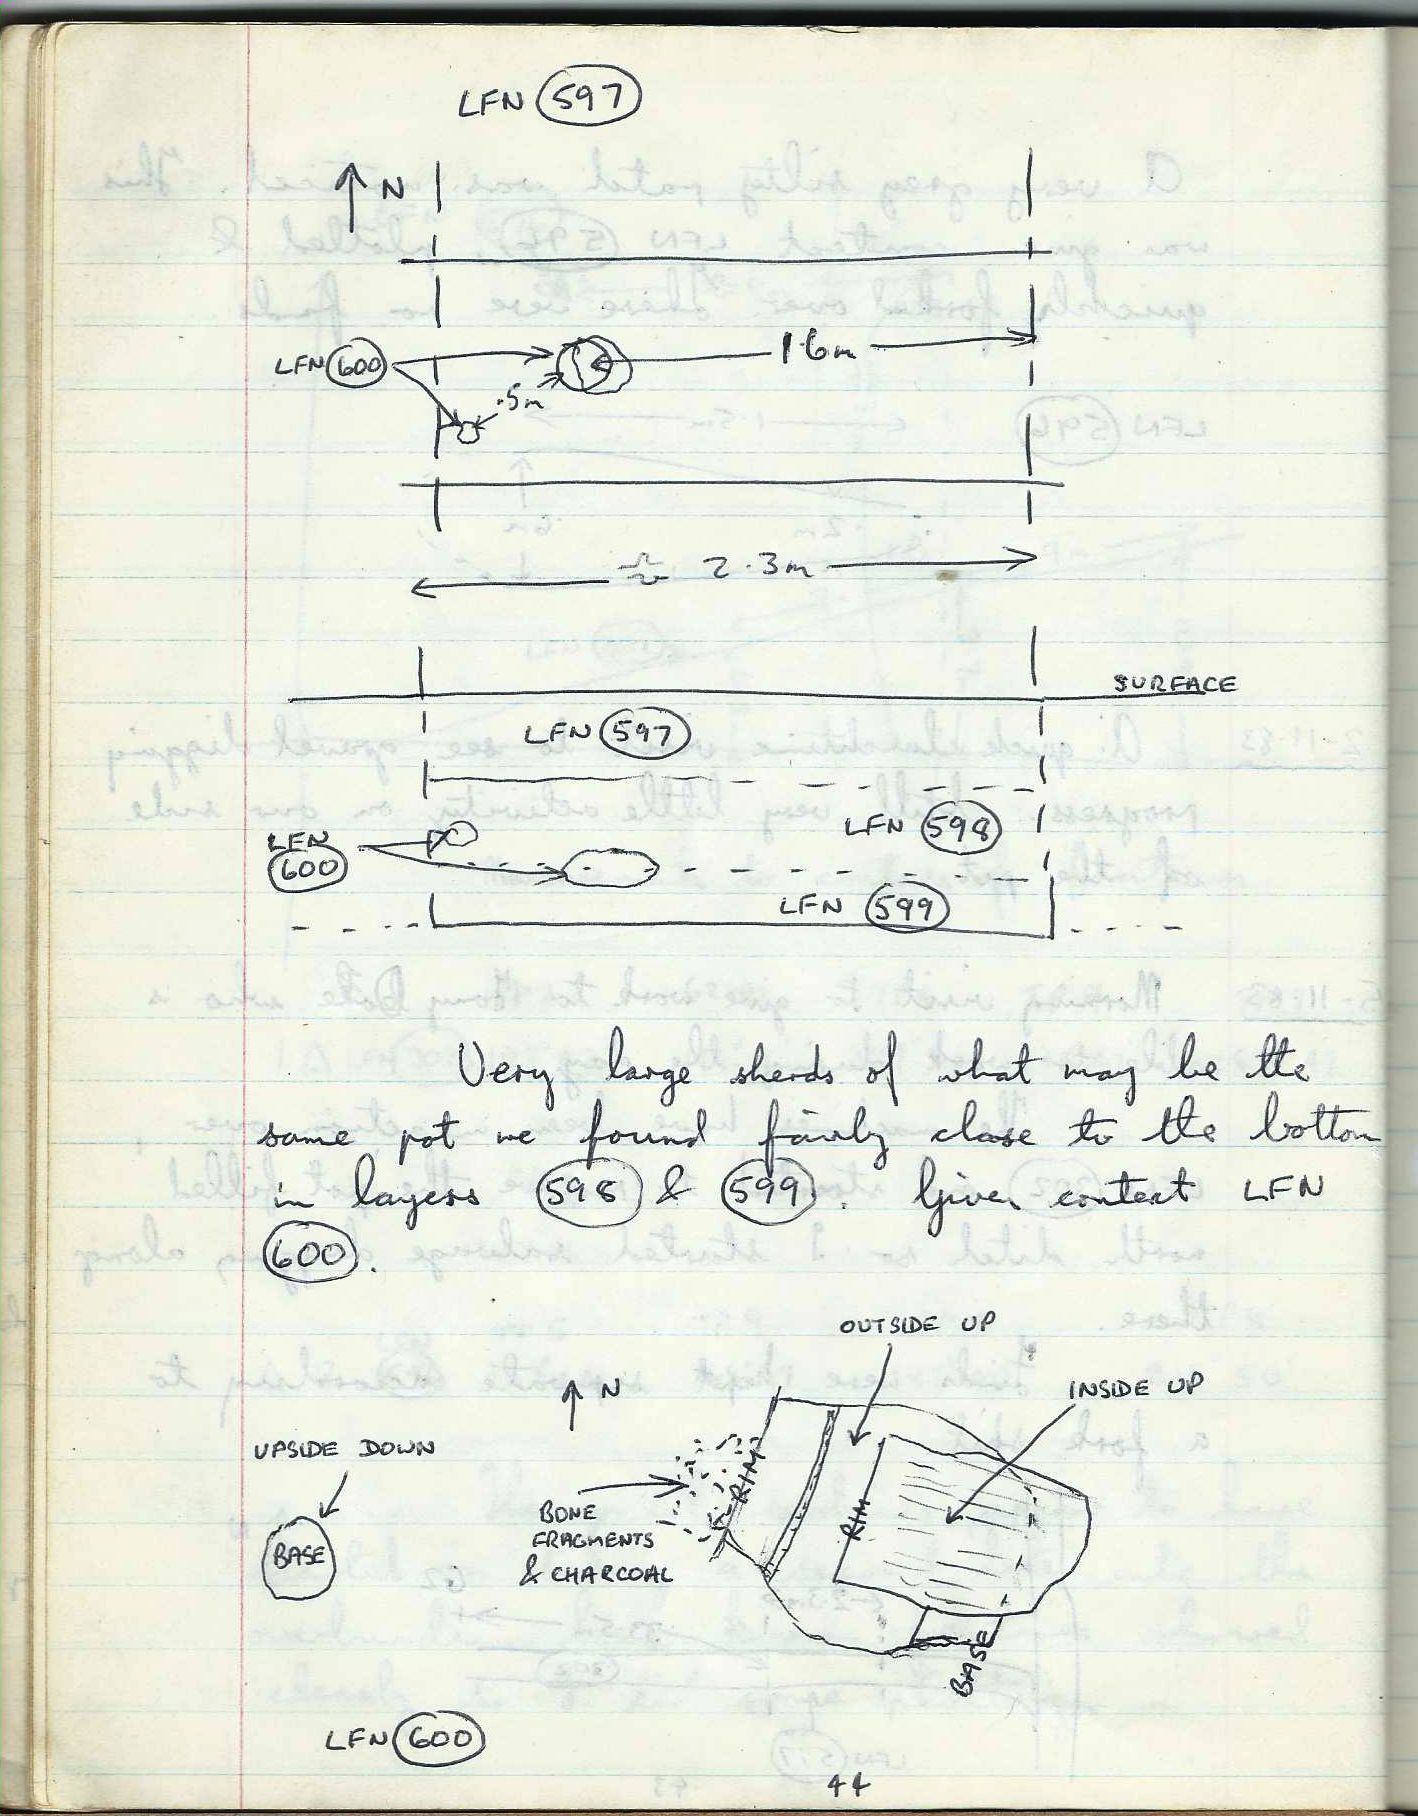 LFN 597
N
1.6m
LFN 600
.5m
2.3m
SURFACE
LFN 597
LFN 598
LFN
600
LFN 599
Very large sherds of what may be the
same pot we found fairly close to the bottom
in layers 598 & 599. Given context LFN
600.
OUTSIDE UP
N
INSIDE UP
UPSIDE DOWN
RIM
BONE
FRAGMENTS
& CHARCOAL
RIM
BASE
BASE
LFN 600
44